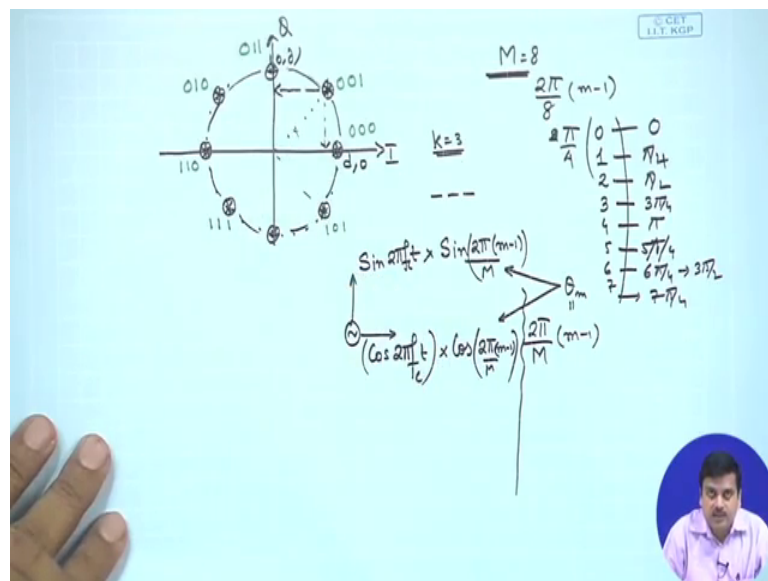 © CET
I.I.T. KGP
Q
011
0,d)
010
001
000
I
d,0
110
111
101
M=8
2π/8 (m-1)
k=3
2π/4
0 0
1 π/4
2 π/2
3 3π/4
4 π
5 5π/4
6 6π/4 → 3π/2
7 7π/4
Sin 2πfct × Sin(2π(m-1)/M)
θm
=
(Cos 2πfct) × Cos(2π(m-1)/M) 2π/M (m-1)